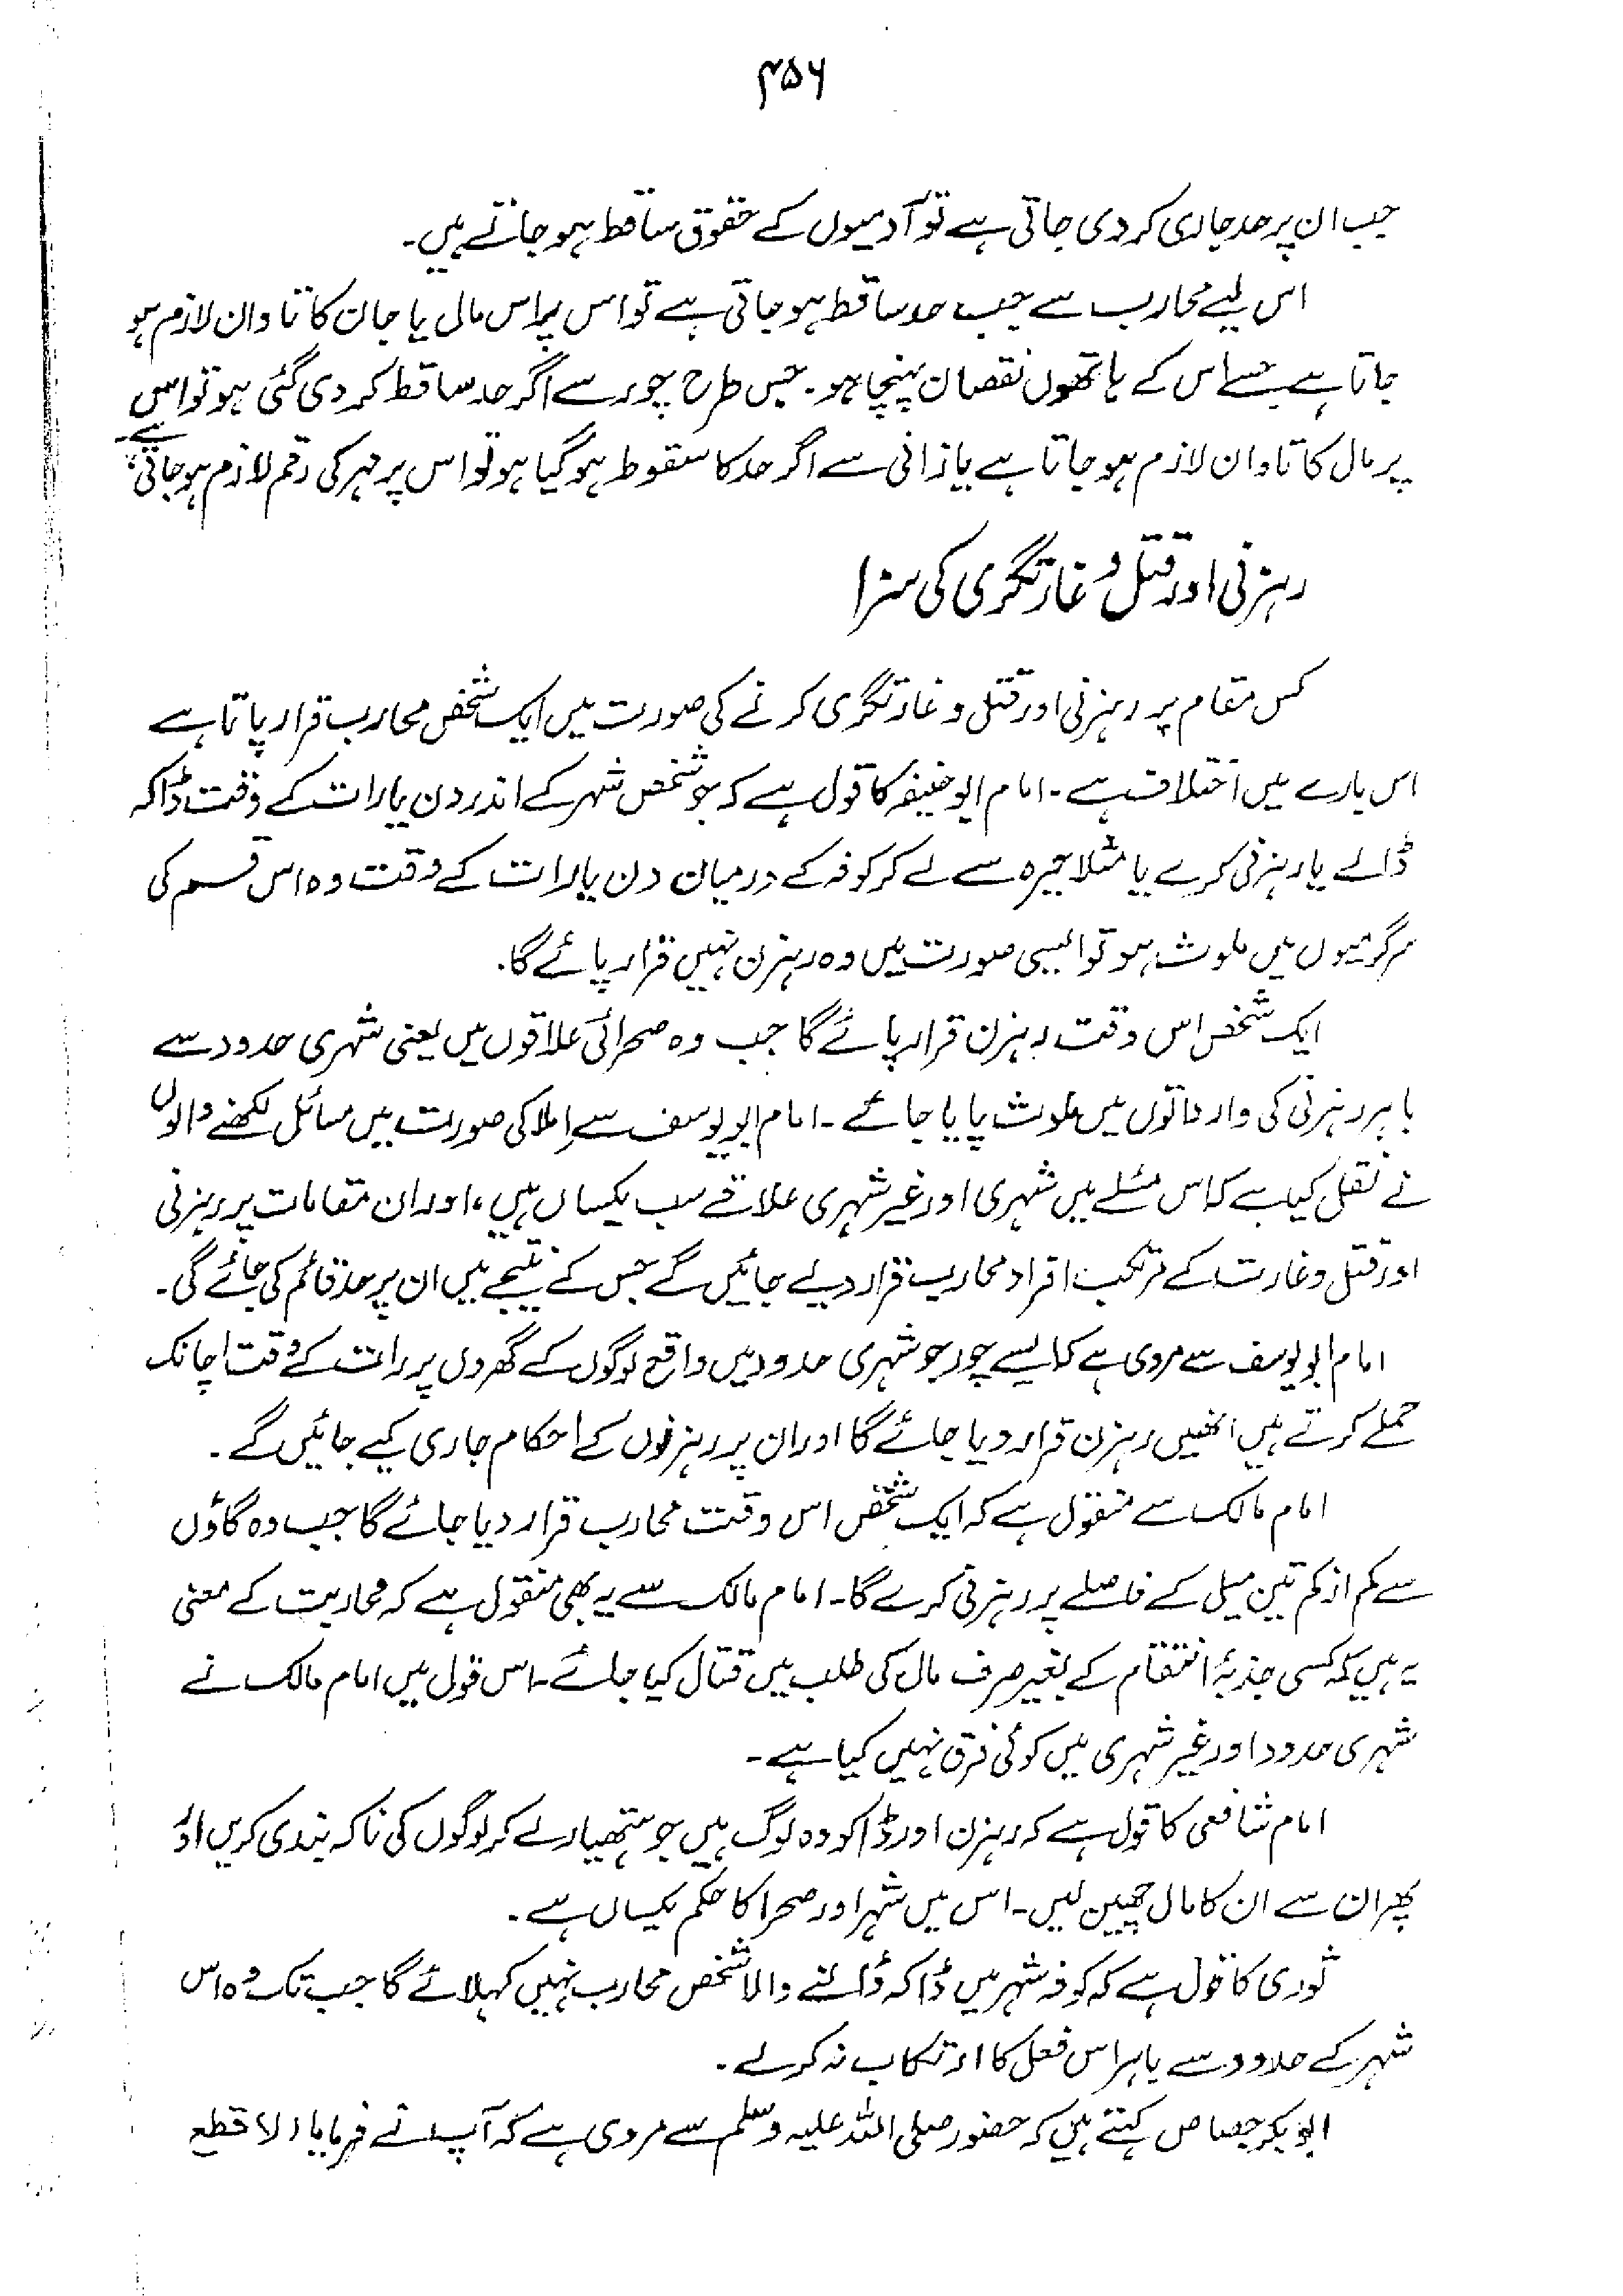 ۴۵۶
جب ان پر حد جاری کر دی جاتی ہے تو آدمیوں کے حقوق ساقط ہو جاتے ہیں۔
اس لیے محارب سے جب حد ساقط ہو جاتی ہے تو اس پر اس مال یا جان کا تاوان لازم ہو
جاتا ہے جسے اس کے ہاتھوں نقصان پہنچا ہو۔ جس طرح چور سے اگر حد ساقط کر دی گئی ہو تو اس
پر مال کا تاوان لازم ہو جاتا ہے یا زانی سے اگر حد کا سقوط ہو گیا ہو تو اس پر مہر کی رقم لازم ہو جاتی ہے۔
رہزنی اور قتل و غارتگری کی سزا
کس مقام پر رہزنی اور قتل و غارتگری کرنے کی صورت میں ایک شخص محارب قرار پاتا ہے
اس بارے میں اختلاف ہے۔ امام ابو حنیفہ کا قول ہے کہ جو شخص شہر کے اندر دن یا رات کے وقت ڈاکہ
ڈالے یا رہزنی کرے یا مثلاً حیرہ سے لے کر کوفہ کے درمیان دن یا رات کے وقت وہ اس قسم کی
سرگرمیوں میں ملوث ہو تو ایسی صورت میں وہ رہزن نہیں قرار پائے گا۔
ایک شخص اس وقت رہزن قرار پائے گا جب وہ صحرائی علاقوں میں یعنی شہری حدود سے
باہر رہزنی کی وارداتوں میں ملوث پایا جائے۔ امام ابو یوسف سے املا کی صورت میں مسائل لکھنے والوں
نے نقل کیا ہے کہ اس مسئلے میں شہری اور غیر شہری علاقے سب یکساں ہیں، اور ان مقامات پر رہزنی
اور قتل و غارت کے مرتکب افراد محارب قرار دیے جائیں گے جس کے نتیجے میں ان پر حد قائم کی جائے گی۔
امام ابو یوسف سے مروی ہے کہ ایسے چور جو شہری حدود میں واقع لوگوں کے گھروں پر رات کے وقت اچانک
حملے کرتے ہیں انھیں رہزن قرار دیا جائے گا اور ان پر رہزنوں کے احکام جاری کیے جائیں گے۔
امام مالک سے منقول ہے کہ ایک شخص اس وقت محارب قرار دیا جائے گا جب وہ گاؤں
سے کم از کم تین میل کے فاصلے پر رہزنی کرے گا۔ امام مالک سے یہ بھی منقول ہے کہ محاربت کے معنی
یہ ہیں کہ کسی جذبۂ انتقام کے بغیر صرف مال کی طلب میں قتال کیا جائے۔ اس قول میں امام مالک نے
شہری حدود اور غیر شہری میں کوئی فرق نہیں کیا ہے۔
امام شافعی کا قول ہے کہ رہزن اور ڈاکو وہ لوگ ہیں جو ہتھیار لے کر لوگوں کی ناکہ بندی کریں اور
پھر ان سے ان کا مال چھین لیں۔ اس میں شہر اور صحرا کا حکم یکساں ہے۔
ثوری کا قول ہے کہ کوفہ شہر میں ڈاکہ ڈالنے والا شخص محارب نہیں کہلائے گا جب تک وہ اس
شہر کے حدود سے باہر اس فعل کا ارتکاب نہ کرلے۔
ابو بکر جصاص کہتے ہیں کہ حضور صلی اللہ علیہ وسلم سے مروی ہے کہ آپ نے فرمایا (لا قطع